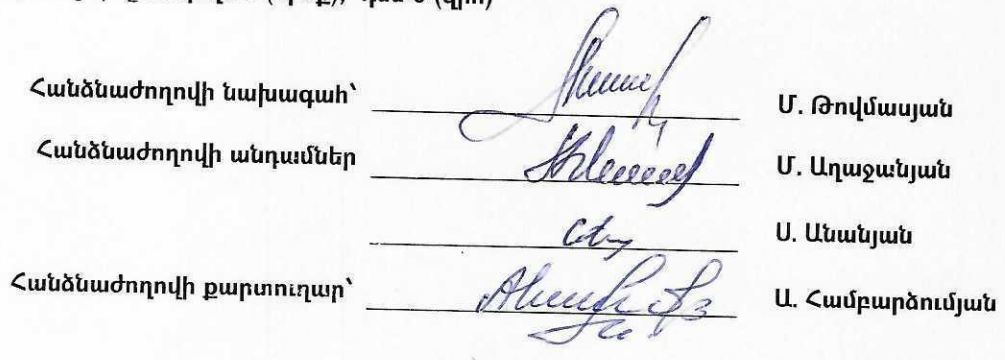 Հանձնաժողովի նախագահ՝ Մ. Թովմասյան
Հանձնաժողովի անդամներ Մ. Աղաջանյան
Ս. Անանյան
Հանձնաժողովի քարտուղար՝ Ա. Համբարձումյան